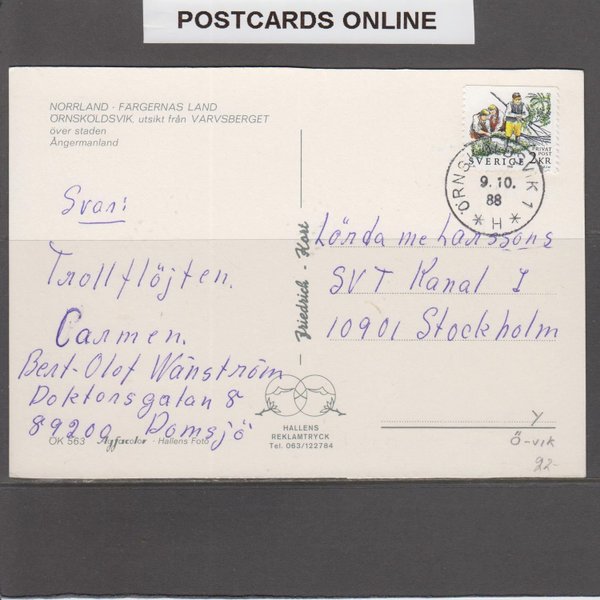 POSTCARDS ONLINE
NORRLAND - FÄRGERNAS LAND
ÖRNSKÖLDSVIK, utsikt från VARVSBERGET
över staden
Ångermanland
SVERIGE 2 KR
PRIVAT
POST
ÖRNSKÖLDSVIK 1
9.10.
88
* H *
Svar:
Trollflöjten.
Carmen.
Bert-Olof Wänström
Doktorsgatan 8
89200 Domsjö
Lörda me Larssons
SVT Kanal I
10901 Stockholm
Friedrich - Kort
HALLENS
REKLAMTRYCK
Tel. 063/122784
ÖK 563 Agfacolor · Hallens Foto
Y
Ö-vik
22-